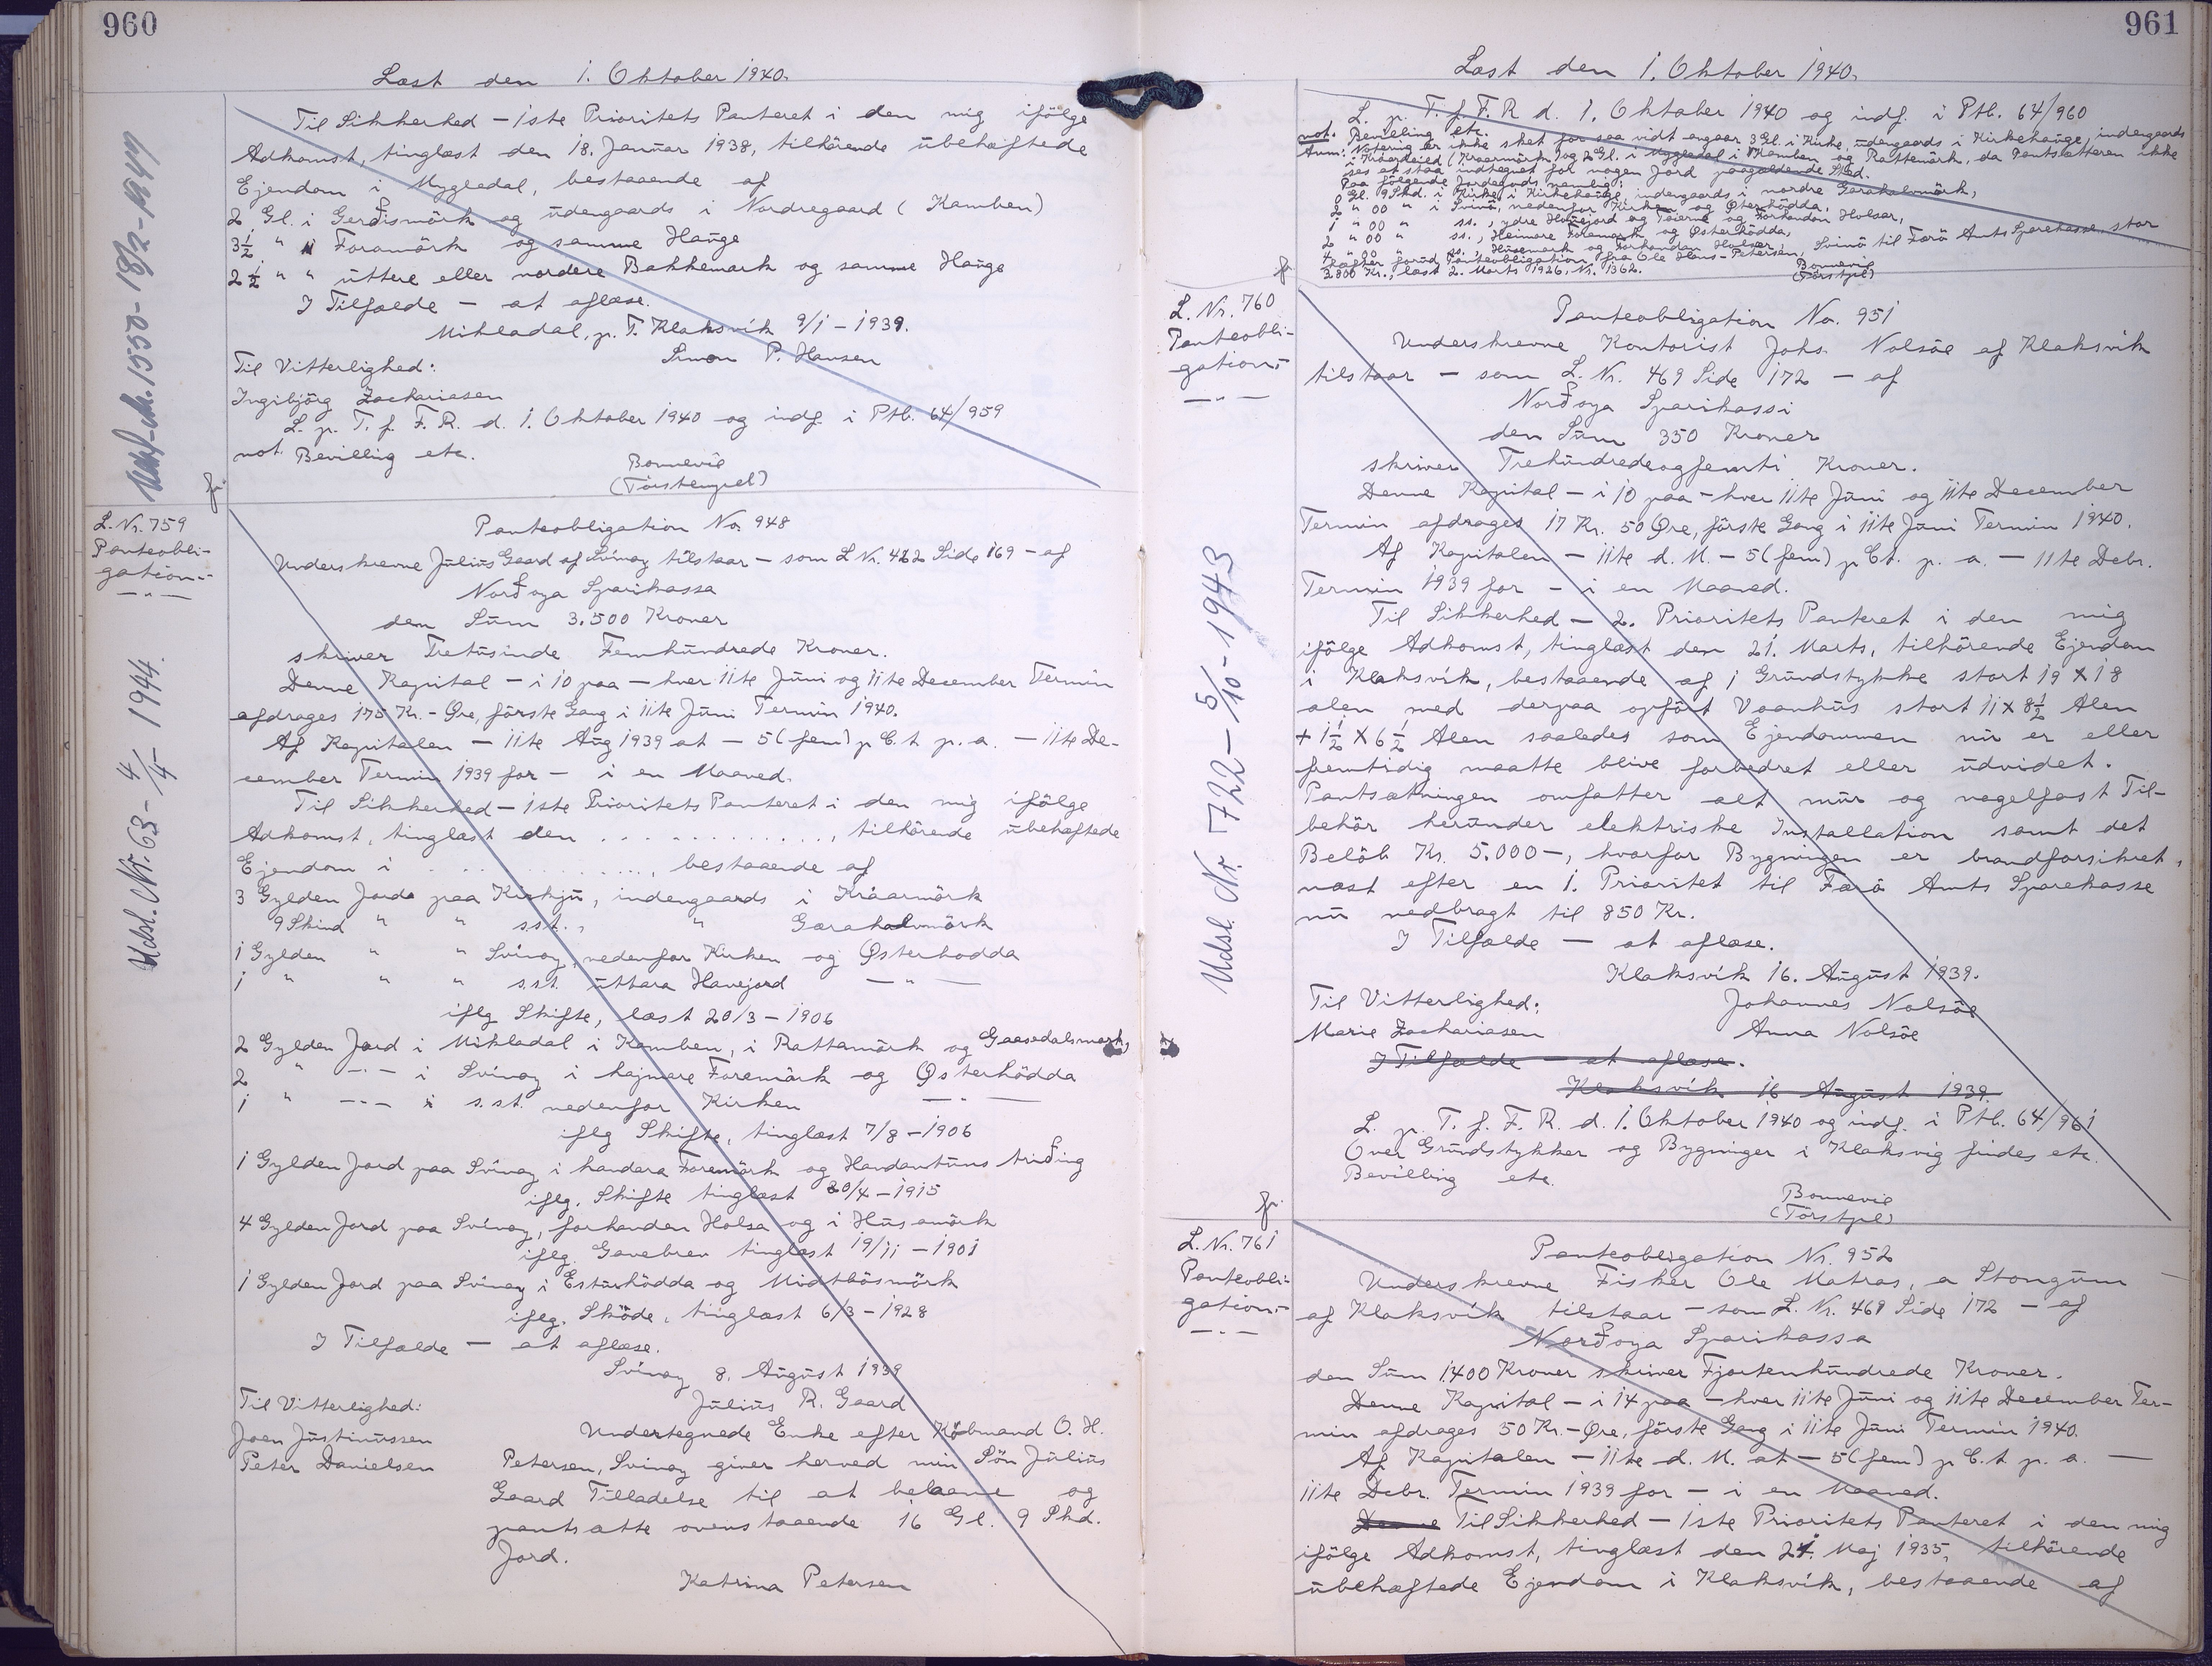 960
Læst den 1. Oktober 1940.
Til Sikkerhed - 1ste Prioritets Panteret i den mig ifölge
Adkomst, tinglæst den 18. Januar 1938, tilhörende ubehæftede
Ejendom i Mygledal, bestaaende af
2 Gl. i Gerðismörk og udengaards i Nordregaard (Kamben)
3½ " i Foramörk og samme Hauge
2½ " " uttere eller nordere Bakkemark og samme Hauge
I Tilfælde - at aflæse.
Mikladal, p. T. Klaksvík 9/1 - 1939.
Simon P. Hansen
Til Vitterlighed:
Ingibjörg Zachariasen
L. p. T. f. F. R. d. 1. Oktober 1940 og indf. i Ptb. 64/959
not. Bevilling etc.
Bonnevie
(Törstempel)
Udsl. Nr. 1550 - 18/2 - 1947
fr.
L. Nr. 759
Panteobli-
gation.-
- " -
Panteobligation No. 948
Underskrevne Júlíus Gaard af Svínoy tilstaar - som L Nr. 462 Side 169 - af
Norðoya Sparikassa
den Sum 3.500 Kroner
skriver Tretusinde Femhundrede Kroner.
Denne Kapital - i 10 paa - hver 11te Juni og 11te December Termin
afdrages 175 Kr. - Øre, förste Gang i 11te Juni Termin 1940.
Af Kapitalen - 11te Aug 1939 at - 5 (fem) p C. t p. a. - 11te De-
cember Termin 1939 for - i en Maaned.
Til Sikkerhed - 1ste Prioritets Panteret i den mig ifölge
Adkomst, tinglæst den . . . . . . . . . . . ., tilhörende ubehæftede
Ejendom i . . . . . . . . . . . ., bestaaende af
3 Gylden Jord paa Kirkju, indengaards i Kráarmörk
9 Skind " " s.st., " Garahalsmörk
1 Gylden " " Svínoy, nedenfor Kirken og Østerhodda
1 " " " s.st. uttara Havejord - " -
iflg Skifte, læst 20/3 - 1906
2 Gylden Jord i Mikladal i Kamben, i Rattamörk og Gaasedalsmark,
2 " - " - i Svínoy i hajmare Foremörk og Østerhödda
1 " - " - i s.st. nedenfor Kirken - " -
iflg Skifte, tinglæst 7/8 - 1906
1 Gylden Jord paa Svínoy i handara Foremörk og Handantuns triðing
iflg. Skifte tinglæst 20/4 - 1915
4 Gylden Jord paa Svínoy, forhanden Holsa og i Húsamörk
iflg. Gavebrev tinglæst 19/11 - 1901
1 Gylden Jord paa Svínoy i Esturhödda og Midtbösmörk
iflg. Sköde, tinglæst 6/3 - 1928
I Tilfælde - at aflæse.
Svínoy 8. August 1939
Júlíus R. Gaard
Til Vitterlighed:
Joen Justinussen
Peter Danielsen
Undertegnede Enke efter Köbmand O. H.
Petersen, Svinoy giver herved min Sön Júlíus
Gaard Tilladelse til at belaane og
pantsætte ovenstaaende 16 Gl. 9 Skd.
Jord.
Katrina Petersen
Udsl. Nr. 63 - 4/4 - 1944.
961
Læst den 1. Oktober 1940.
L. p. T. f. F. R d. 1. Oktober 1940 og indf. i Ptb. 64/960
not. Bevilling etc.
Anm: Notering er ikke sket for saa vidt angaar 3 Gl. i Kirke, udengaards i Kirkehauge, indengaards
i Kraardejed (Kraarmörk) og 2 Gl. i Mygledal i Kamben og Rattemörk, da Pantsætteren ikke
ses at staa indtegnet for nogen Jord paagældende Sted.
Paa fölgende Jordegods nemlig:
0 Gl. 9 Skd. i Kirke i Kirkehauge, indengaards i nordre Garahalsmörk,
2 " 00 " i Svinö, nedenfor Kirken og Østerhödda,
1 " 00 " ss., ydre Havejord og Tverne og Forhanden Holsar,
2 " 00 " ss., Heimare Foremörk og Østerhödda,
4 " 00 " ss., Husemörk og Forhanden Holsar, Svinö til Færö Amts Sparekasse stor
hæfter forud Panteobligation fra Ole Hans-Petersen,
3.800 Kr., læst 2. Marts 1926, Nr. 1362.
Bonnevie
(Törstpl)
fr.
L. Nr. 760
Panteobli-
gation.-
- " -
Panteobligation No. 951
Underskrevne Kontorist Johs. Nolsöe af Klaksvík
tilstaar - som L. Nr. 469 Side 172 - af
Norðoya Sparikassi
den Sum 350 Kroner
skriver Trehundredeogfemti Kroner.
Denne Kapital - i 10 paa - hver 11te Juni og 11te December
Termin afdrages 17 Kr. 50 Øre, förste Gang i 11te Juni Termin 1940.
Af Kapitalen - 11te d. M. - 5 (fem) p C.t. p. a. - 11te Debr.
Termin 1939 for - i en Maaned.
Til Sikkerhed - 2. Prioritets Panteret i den mig
ifölge Adkomst, tinglæst den 21. Marts, tilhörende Ejendom
i Klaksvík, bestaaende af 1 Grundstykke stort 19 x 18
alen med derpaa opfört Vaanhus stort 11 x 8½ Alen
+ 1½ x 6½ Alen saaledes som Ejendommen nu er eller
fremtidig maatte blive forbedret eller udvidet.
Pantsætningen omfatter alt mur og nagelfast Til-
behör herunder elektriske Installation samt det
Belöb Kr. 5.000-, hvorfor Bygningen er brandforsikret,
næst efter en 1. Prioritet til Færö Amts Sparekasse
nu nedbragt til 850 Kr.
I Tilfælde - at aflæse.
Klaksvík 16. August 1939.
Til Vitterlighed: Johannes Nolsöe
Marie Zachariasen Anna Nolsöe
I Tilfælde - at aflæse.
Klaksvík 16 August 1939.
L. p. T. f. F. R. d. 1. Oktober 1940 og indf. i Ptb. 64/961
Over Grundstykker og Bygninger i Klaksvig findes etc.
Bevilling etc.
Bonnevie
(Törstpl)
Udsl. Nr. 722 - 5/10 - 1943
fr.
L. Nr. 761
Panteobli-
gation.-
- " -
Panteobligation Nr. 952
Underskrevne Fisker Ole Matras, a Stongum
af Klaksvík tilstaar - som L. Nr. 469 Side 172 - af
Norðoya Sparikassa
den Sum 1400 Kroner skriver Fjortenhundrede Kroner.
Denne Kapital - i 14 paa - hver 11te Juni og 11te December Ter-
min afdrages 50 Kr. - Øre, förste Gang i 11te Juni Termin 1940.
Af Kapitalen - 11te d. M. at - 5 (fem) p C.t p. a. -
11te Debr. Termin 1939 for - i en Maaned.
Denne Til Sikkerhed - 1ste Prioritets Panteret i den mig
ifölge Adkomst, tinglæst den 21. Maj 1935, tilhörende
ubehæftede Ejendom i Klaksvík, bestaaende af